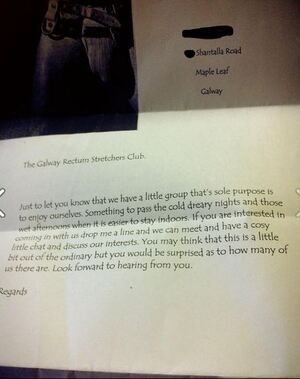 Shantalla Road
Maple Leaf
Galway
The Galway Rectum Stretchers Club.
Just to let you know that we have a little group that's sole purpose is
to enjoy ourselves. Something to pass the cold dreary nights and those
wet afternoons when it is easier to stay indoors. If you are interested in
coming in with us drop me a line and we can meet and have a cosy
little chat and discuss our interests. You may think that this is a little
bit out of the ordinary but you would be surprised as to how many of
us there are. Look forward to hearing from you.
Regards